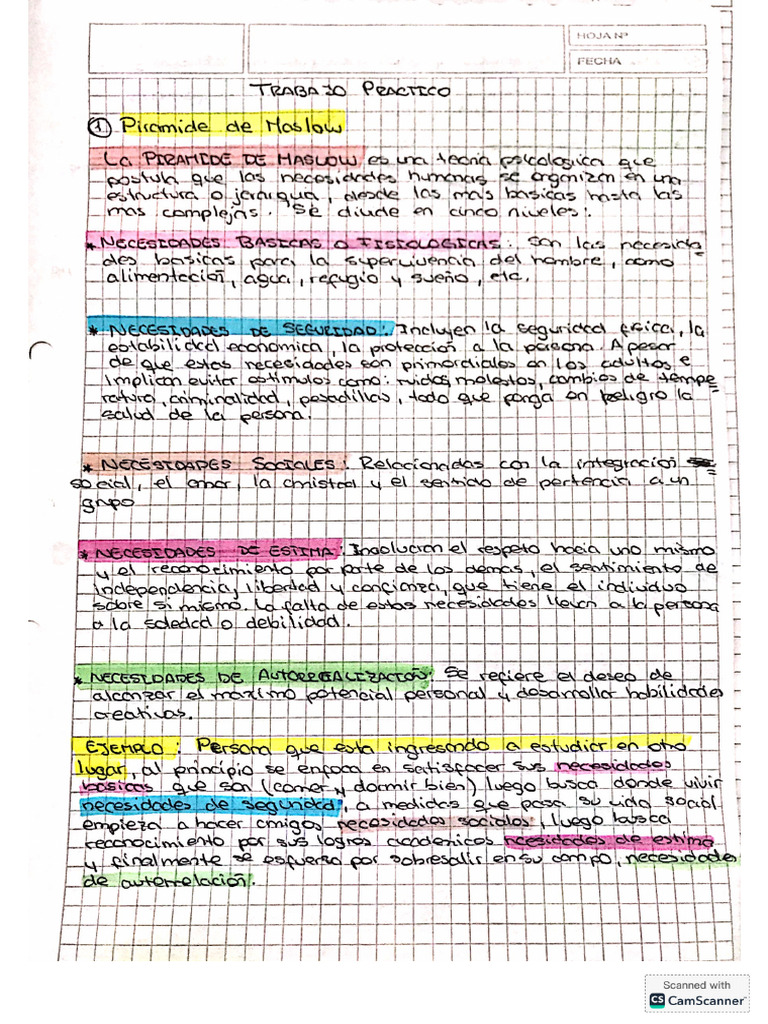 HOJA Nº
FECHA
TRABAJO PRACTICO
① Piramide de Maslow
La PIRAMIDE DE MASLOW es una teoria psicologica que
postula que las necesidades humanas se organizan en una
estructura o jerarquia, desde las mas basicas hasta las
mas complejas. Se divide en cinco niveles:
* NECESIDADES BASICAS O FISIOLOGICAS: Son las necesida
des basicas para la supervivencia del hombre, como
alimentación, agua, refugio y sueño, etc.
* NECESIDADES DE SEGURIDAD: Incluyen la seguridad fisica, la
estabilidad economica, la protección a la persona. A pesar
de que estas necesidades son primordiales en los adultos e
implican evitar estimulos como: ruidos molestos, cambios de tempe
ratura, criminalidad, pesadillas, todo que ponga en peligro la
salud de la persona.
* NECESIDADES SOCIALES: Relacionadas con la integracion
social, el amor, la amistad y el sentido de pertencia a un
grupo
* NECESIDADES DE ESTIMA: Involucran el respeto hacia uno mismo
y el reconocimiento por parte de los demas, el sentimiento de
independencia, libertad y confianza, que tiene el individuo
sobre si mismo. La falta de estas necesidades llevan a la persona
a la soledad o debilidad.
* NECESIDADES DE AUTORREALIZACIÓN: Se refiere el deseo de
alcanzar el maximo potencial personal y desarrollar habilidades
creativas.
EJEMPLO: Persona que esta ingresando a estudiar en otro
lugar, al principio se enfoca en satisfacer sus necesidades
basicas que son (comer y dormir bien) luego busca donde vivir
necesidades de seguridad, a medidas que pasa su vida social
empieza a hacer amigos necesidades sociales, luego busca
reconocimiento por sus logros academicos necesidades de estima
y finalmente se esfuerzo por sobresalir en su campo, necesidades
de autorrelación.
Scanned with
CS CamScanner